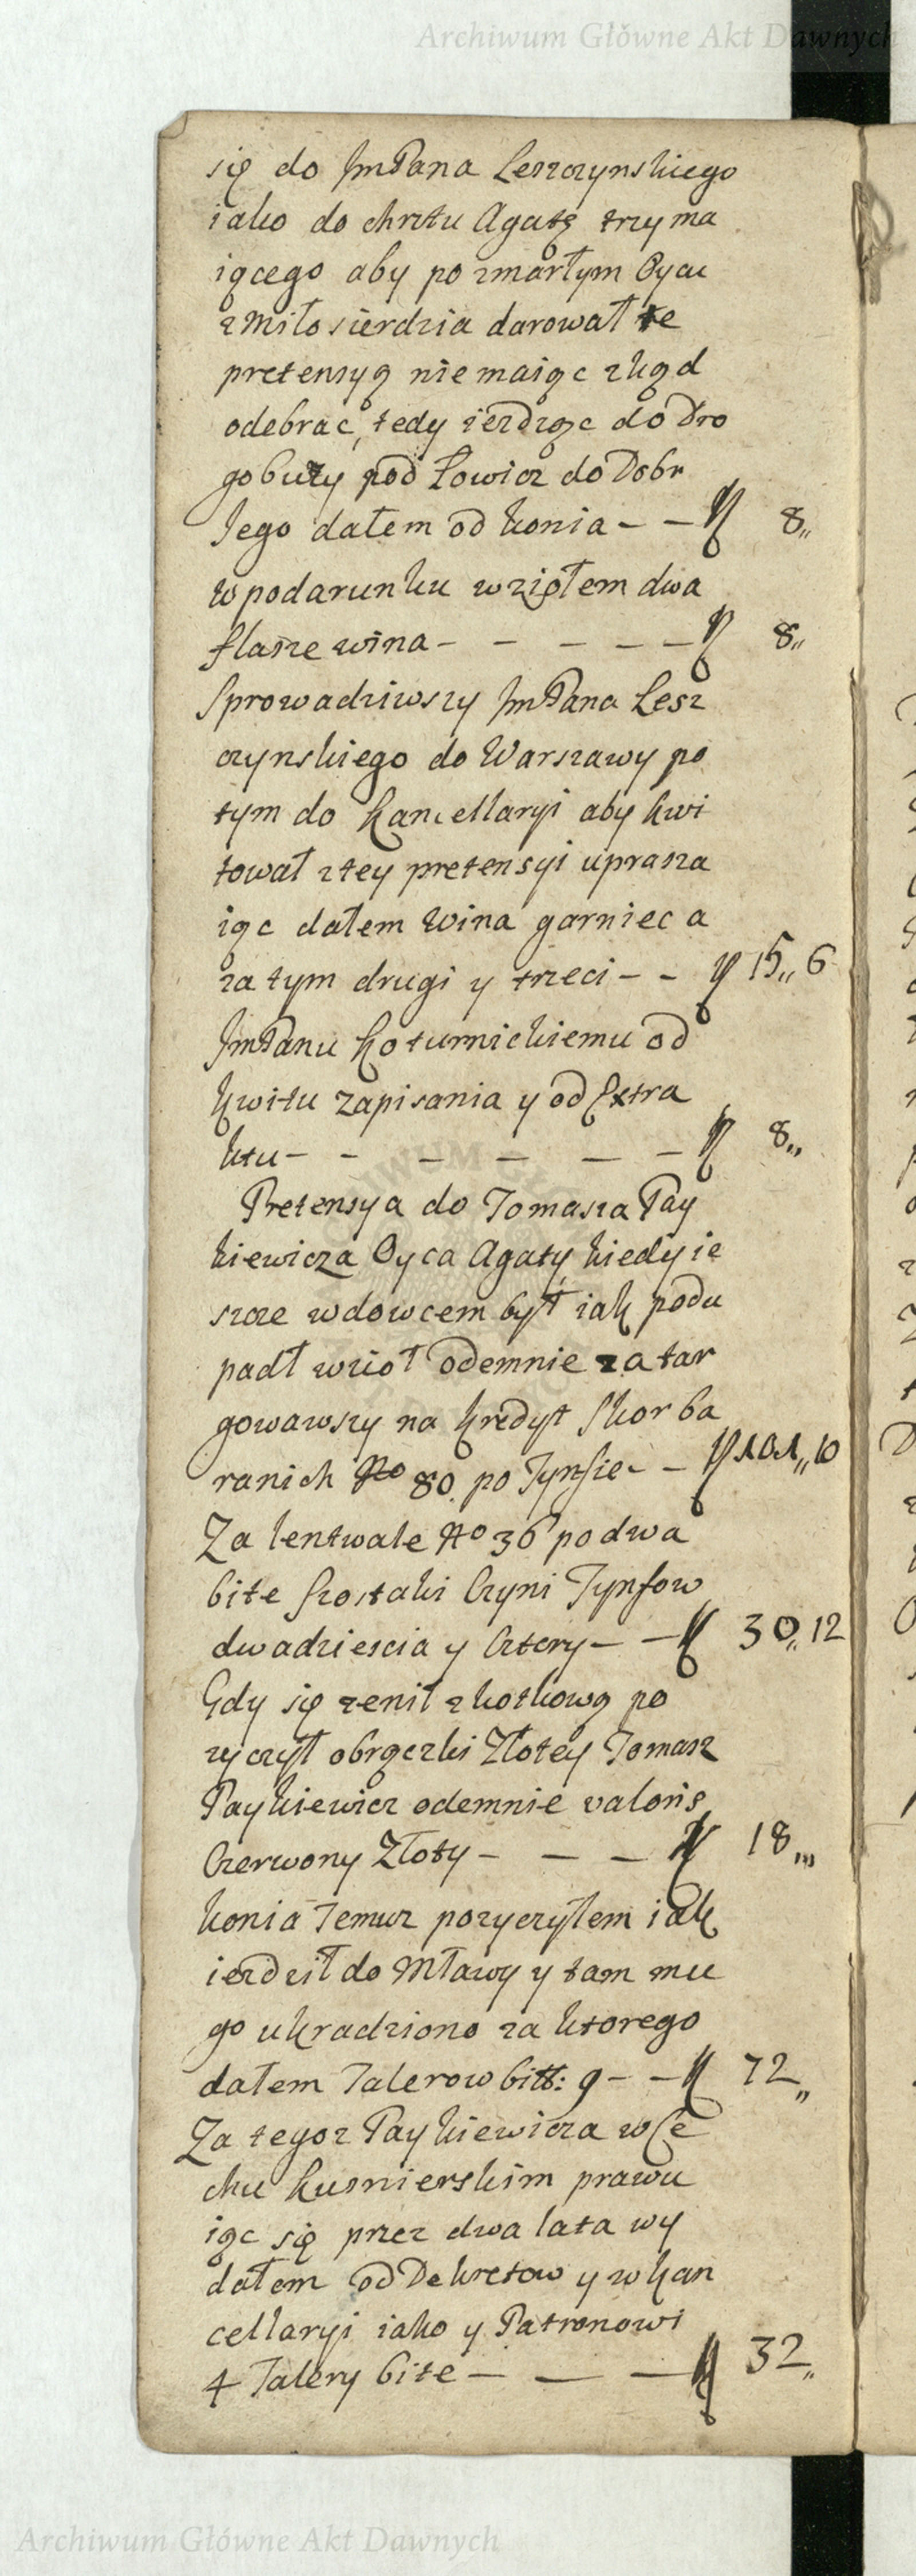 Archiwum Główne Akt Dawnych
się do JmPana Leszczynskiego
iako do chrztu Agatę trzyma
iącego aby po zmarłym Oycu
z miłosierdzia darował te
pretensyą nie maiąc zkąd
odebrać, tedy iezdząc do Dro
gobuzy pod Łowicz do Dobr
Jego dałem od konia - - 8,,
w podarunku wziąłem dwa
flasze wina - - - - - 8,,
Sprowadziwszy JmPana Lesz
czynskiego do Warszawy po
tym do Kancellaryi aby kwi
tował z tey pretensyi uprasza
iąc dałem wina garniec a
za tym drugi y trzeci - - 15,, 6
JmPanu Koturnickiemu od
kwitu zapisania y od Extra
ktu - - - - - - 8,,
Pretensya do Tomasza Pay
kiewicza Oyca Agaty kiedy ie
szcze wdowcem był iak podu
padł wzioł odemnie za tar
gowawszy na kredyt skor ba
ranich No 80. po Tynfie - - 101,, 10
Za lentwale No 36 po dwa
bite szostaki Czyni Tynfow
dwadziescia y Cztery - - 30,, 12
Gdy się zenił z kotkową po
zyczył obrączki Złotey Tomasz
Paykiewicz odemnie valoris
Czerwony Złoty - - - 18,,,
konia Temuz pozyczyłem iak
iezdził do Mławy y tam mu
go ukradziono za ktorego
dałem Talerow bitt: 9 - - 72,,
Za tegoz Paykiewicza w Ce
chu kusnierskim prawu
iąc się przez dwa lata wy
dałem od Dekretow y w kan
cellaryi iako y Patronowi
4 Talery bite - - - 32,,
Archiwum Główne Akt Dawnych